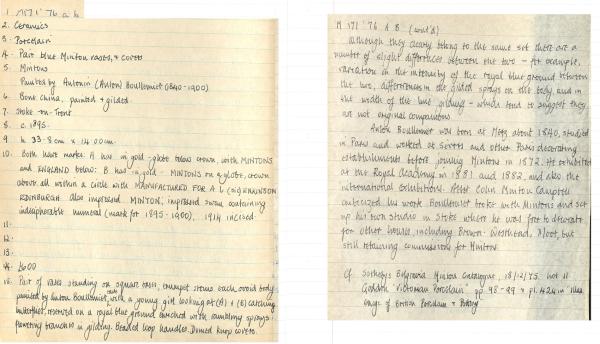 1. M171 '76 a b
2. Ceramics
3. Porcelain
4. Pair blue Minton vases, & covers
5. Mintons
Painted by Antonin (Anton) Boullemiet (1840-1900)
6. Bone China, painted & gilded.
7. Stoke-on-Trent
8. c. 1895.
9. h. 33.8 cm x 14.00cm.
10. Both have marks: A has in gold - globe below crown, with MINTONS
and ENGLAND below: B has in gold - MINTONS on a globe, crown
above all within a circle with MANUFACTURED FOR A L (sic) WILKINSON
EDINBURGH also impressed MINTON, impressed swan containing
indecipherable numeral (mark for 1895-1900). 1914 incised.
11.
12.
13.
14. £600
15. Pair of vases standing on square bases, trumpet stems each ovoid body
painted by Anton Boullemiet, with a young girl looking at (A) & (B) catching
butterflies, reserved on a royal blue ground enriched with rambling sprays
flowering branches in gilding. Beaded loop handles. Domed knop covers.
M 171 '76 A B (cont'd)
Although they clearly belong to the same set there are a
number of slight differences between the two - for example,
variation in the intensity of the royal blue ground between
the two, differences in the gilded sprays on the body and in
the width of the line gilding - which tend to suggest they
are not original companions.
Anton Boullemiet was born at Metz about 1840, studied
in Paris and worked at Sevres and other Paris decorating
establishments before joining Mintons in 1872. He exhibited
at the Royal Academy in 1881 and 1882, and also the
International Exhibitions. After Colin Minton Campbell
criticized his work Boullemiet broke with Mintons and set
up his own studio in Stoke where he was free to decorate
for other houses, including Brown-Westhead, Moore, but
still retaining commissions for Mintons.
Cf. Sothebys Belgravia Minton Catalogue, 18/12/75. lot 11
Godden "Victorian Porcelain" pp. 98-99 & pl. 424 in Illus
Ency of British Porcelain & Pottery